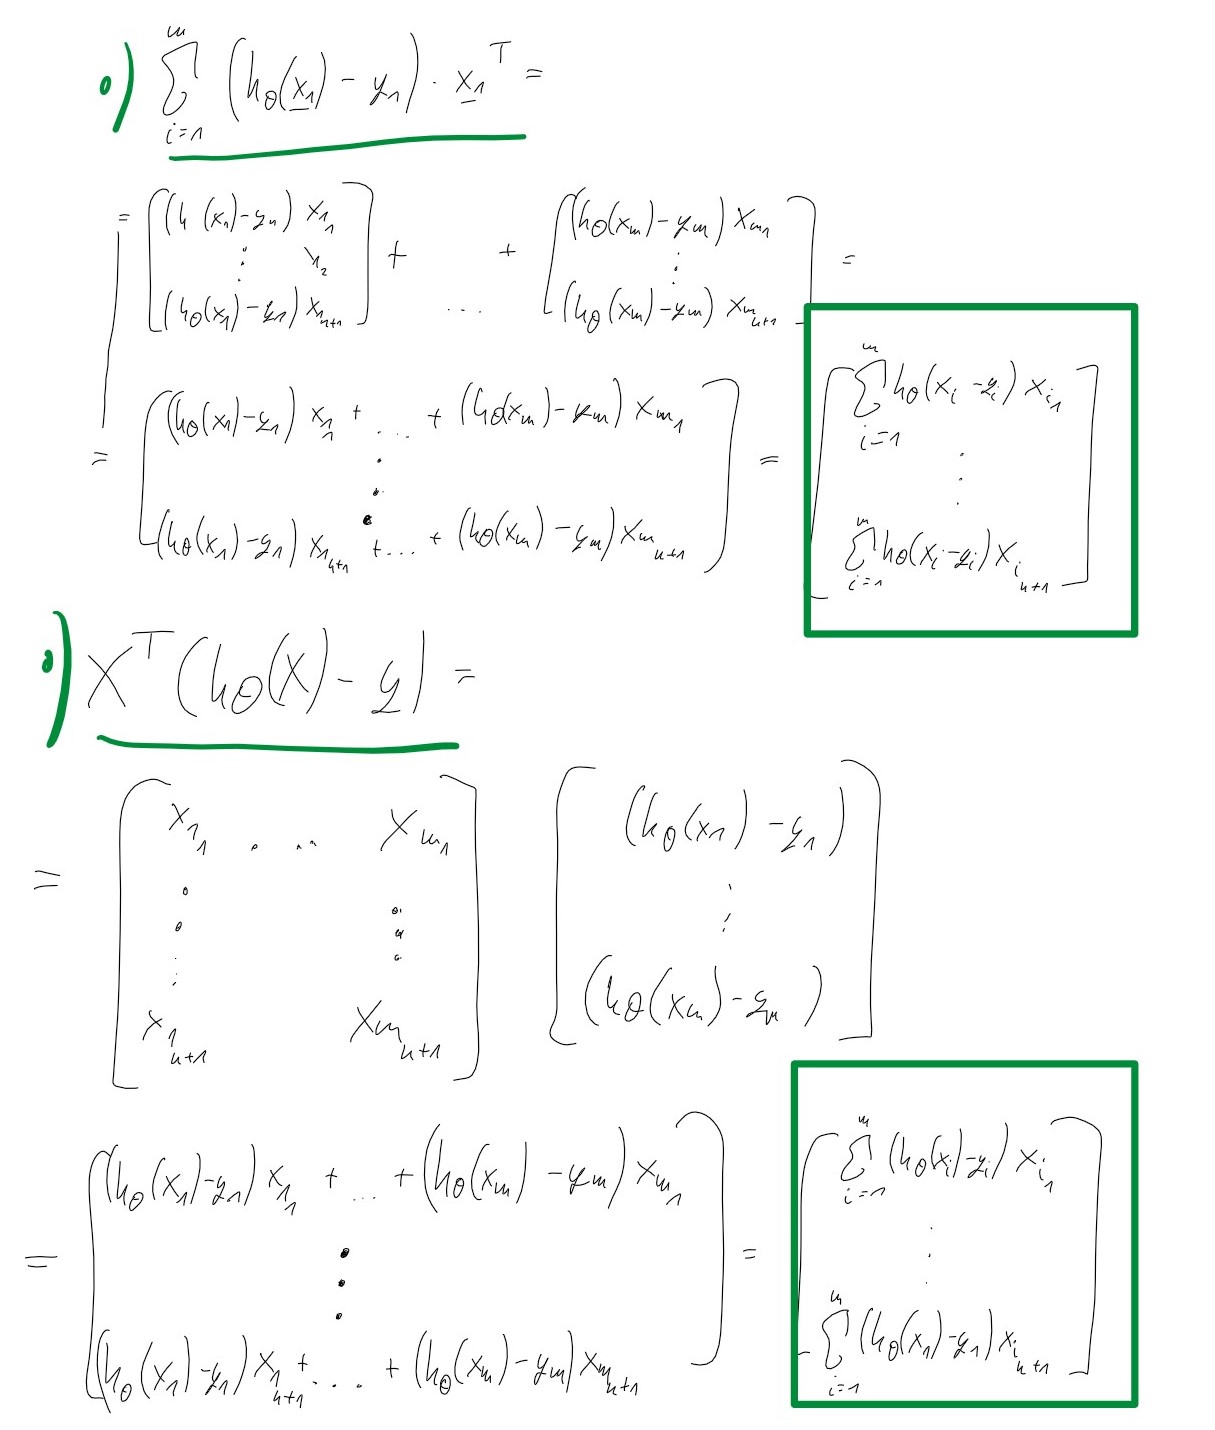 o) \sum_{i=1}^{m} (h_θ(x_1) - y_1) · x_1^T =
= [ (h (x_1)-y_1) x_{1_1} ⋮ 1_2 (h_θ(x_1)-y_1) x_{1_{n+1}} ] + ... + [ (h_θ(x_m)-y_m) x_{m_1} ⋮ (h_θ(x_m)-y_m) x_{m_{n+1}} ] =
= [ (h_θ(x_1)-y_1) x_{1_1} + ... + (h_θ(x_m)-y_m) x_{m_1} ⋮ (h_θ(x_1)-y_1) x_{1_{n+1}} + ... + (h_θ(x_m)-y_m) x_{m_{n+1}} ] = [ \sum_{i=1}^{m} h_θ(x_i-y_i) x_{i_1} ⋮ \sum_{i=1}^{m} h_θ(x_i-y_i) x_{i_{n+1}} ]
o) X^T (h_θ(X) - y) =
= [ x_{1_1} ... x_{m_1} ⋮ ⋮ x_{1_{n+1}} x_{m_{n+1}} ] [ (h_θ(x_1) - y_1) ⋮ (h_θ(x_m) - y_m) ]
= [ (h_θ(x_1)-y_1) x_{1_1} + ... + (h_θ(x_m) - y_m) x_{m_1} ⋮ (h_θ(x_1)-y_1) x_{1_{n+1}} + ... + (h_θ(x_m)-y_m) x_{m_{n+1}} ] = [ \sum_{i=1}^{m} (h_θ(x_i)-y_i) x_{i_1} ⋮ \sum_{i=1}^{m} (h_θ(x_1)-y_1) x_{i_{n+1}} ]